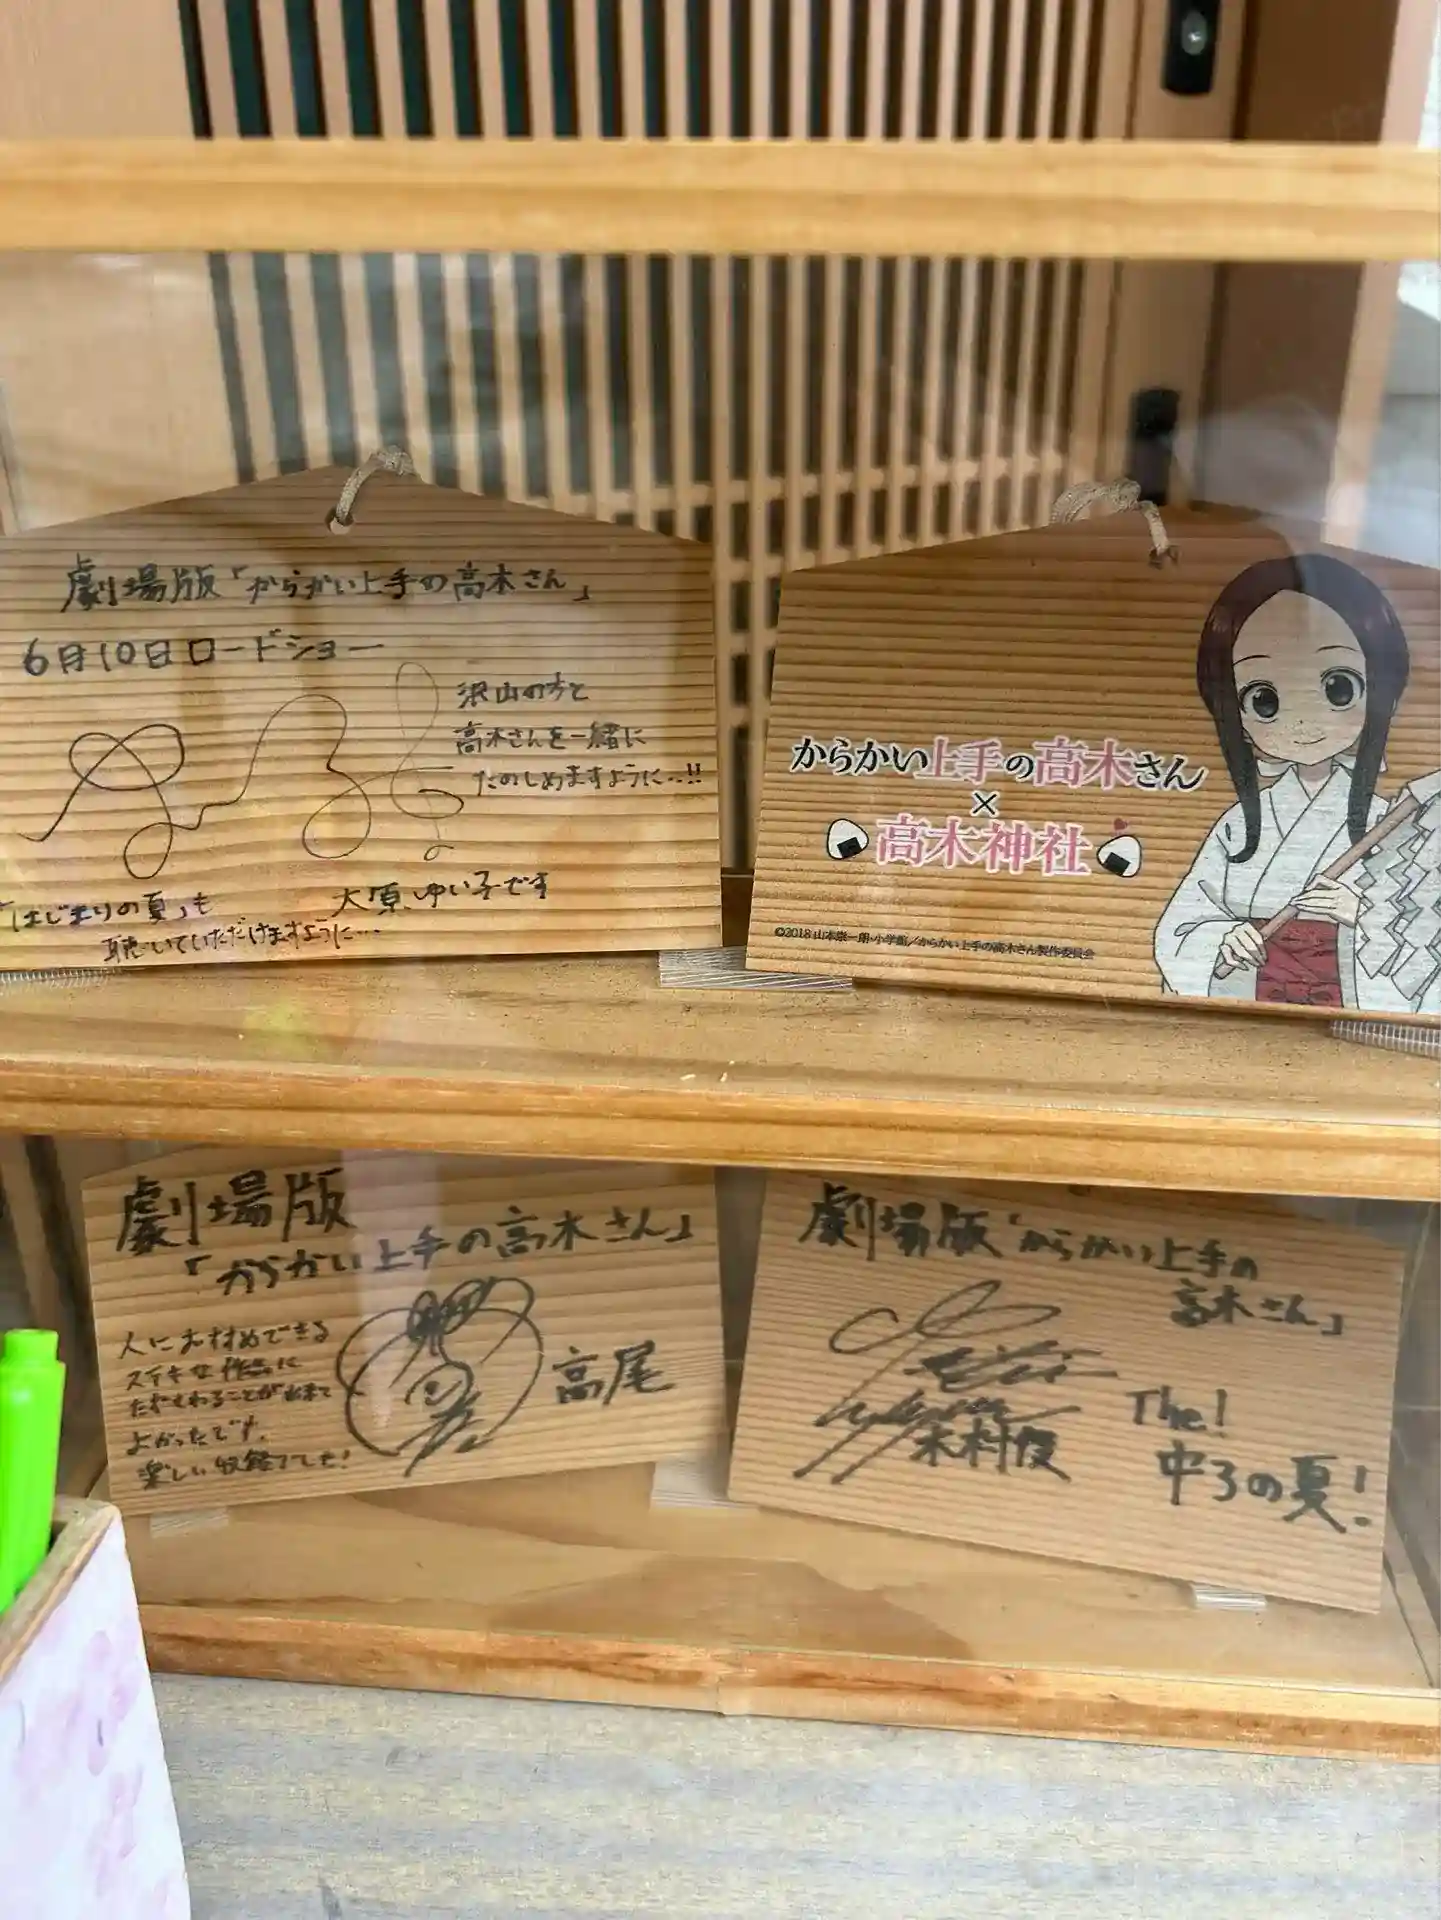 劇場版「からかい上手の高木さん」
6月10日ロードショー
沢山の方と
高木さんを一緒に
たのしめますように…!!
「はじまりの夏」も
聴いていただけますように…
大原ゆい子です
からかい上手の高木さん
×
高木神社
©2018 山本崇一朗・小学館／からかい上手の高木さん製作委員会
劇場版
「からかい上手の高木さん」
人におすすめできる
ステキな作品に
たずさわることが出来て
よかったです。
楽しい収録でした!
高尾
劇場版「からかい上手の
高木さん」
The!
中3の夏!